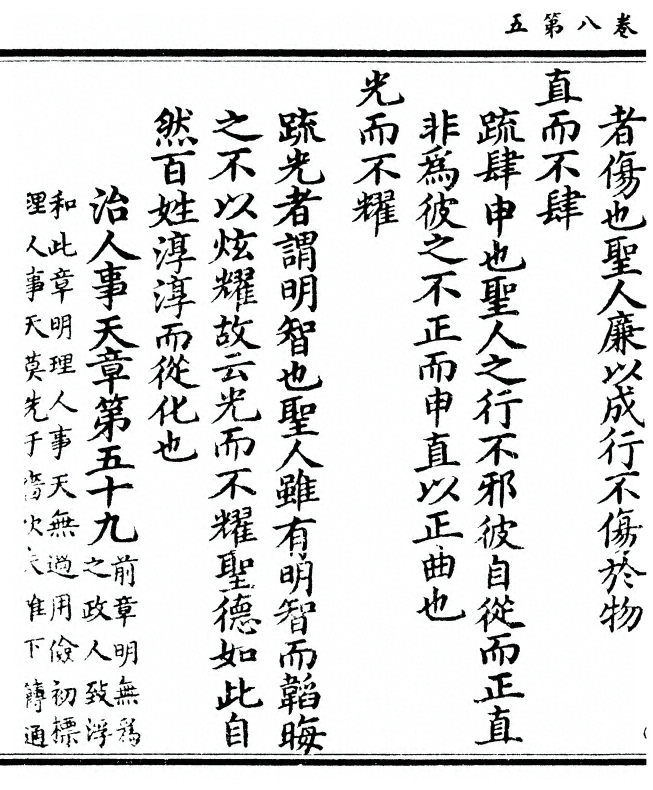 卷八第五
者傷也聖人廉以成行不傷於物
直而不肆
疏肆申也聖人之行不邪彼自從而正直
非為彼之不正而申直以正曲也
光而不耀
疏光者謂明智也聖人雖有明智而韜晦
之不以炫耀故云光而不耀聖德如此自
然百姓淳淳而從化也
治人事天章第五十九
前章明無為
之政人致淳
和此章明理人事天無過用儉初標
理人事天莫先于嗇次
下
通